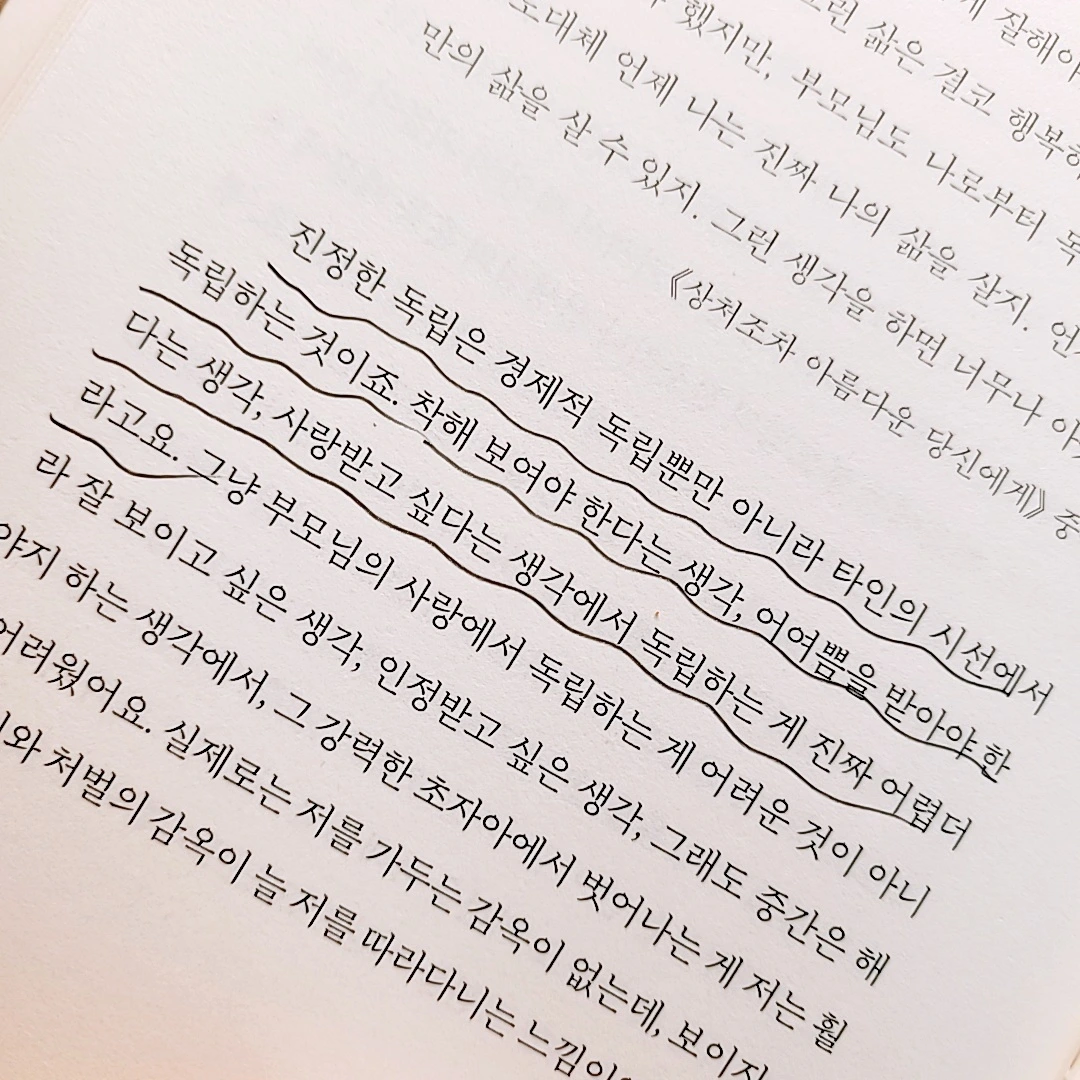 잘해야
삶은 결코 행복하
했지만, 부모님도 나로부터 독
언제 나는 진짜 나의 삶을 살지. 언
만의 삶을 살 수 있지. 그런 생각을 하면 너무나 아
《상처조차 아름다운 당신에게》 중
진정한 독립은 경제적 독립뿐만 아니라 타인의 시선에서
독립하는 것이죠. 착해 보여야 한다는 생각, 어여쁨을 받아야 한
다는 생각, 사랑받고 싶다는 생각에서 독립하는 게 진짜 어렵더
라고요. 그냥 부모님의 사랑에서 독립하는 게 어려운 것이 아니
라 잘 보이고 싶은 생각, 인정받고 싶은 생각, 그래도 중간은 해
야지 하는 생각에서, 그 강력한 초자아에서 벗어나는 게 저는 훨
어려웠어요. 실제로는 저를 가두는 감옥이 없는데, 보이지
와 처벌의 감옥이 늘 저를 따라다니는 느낌이